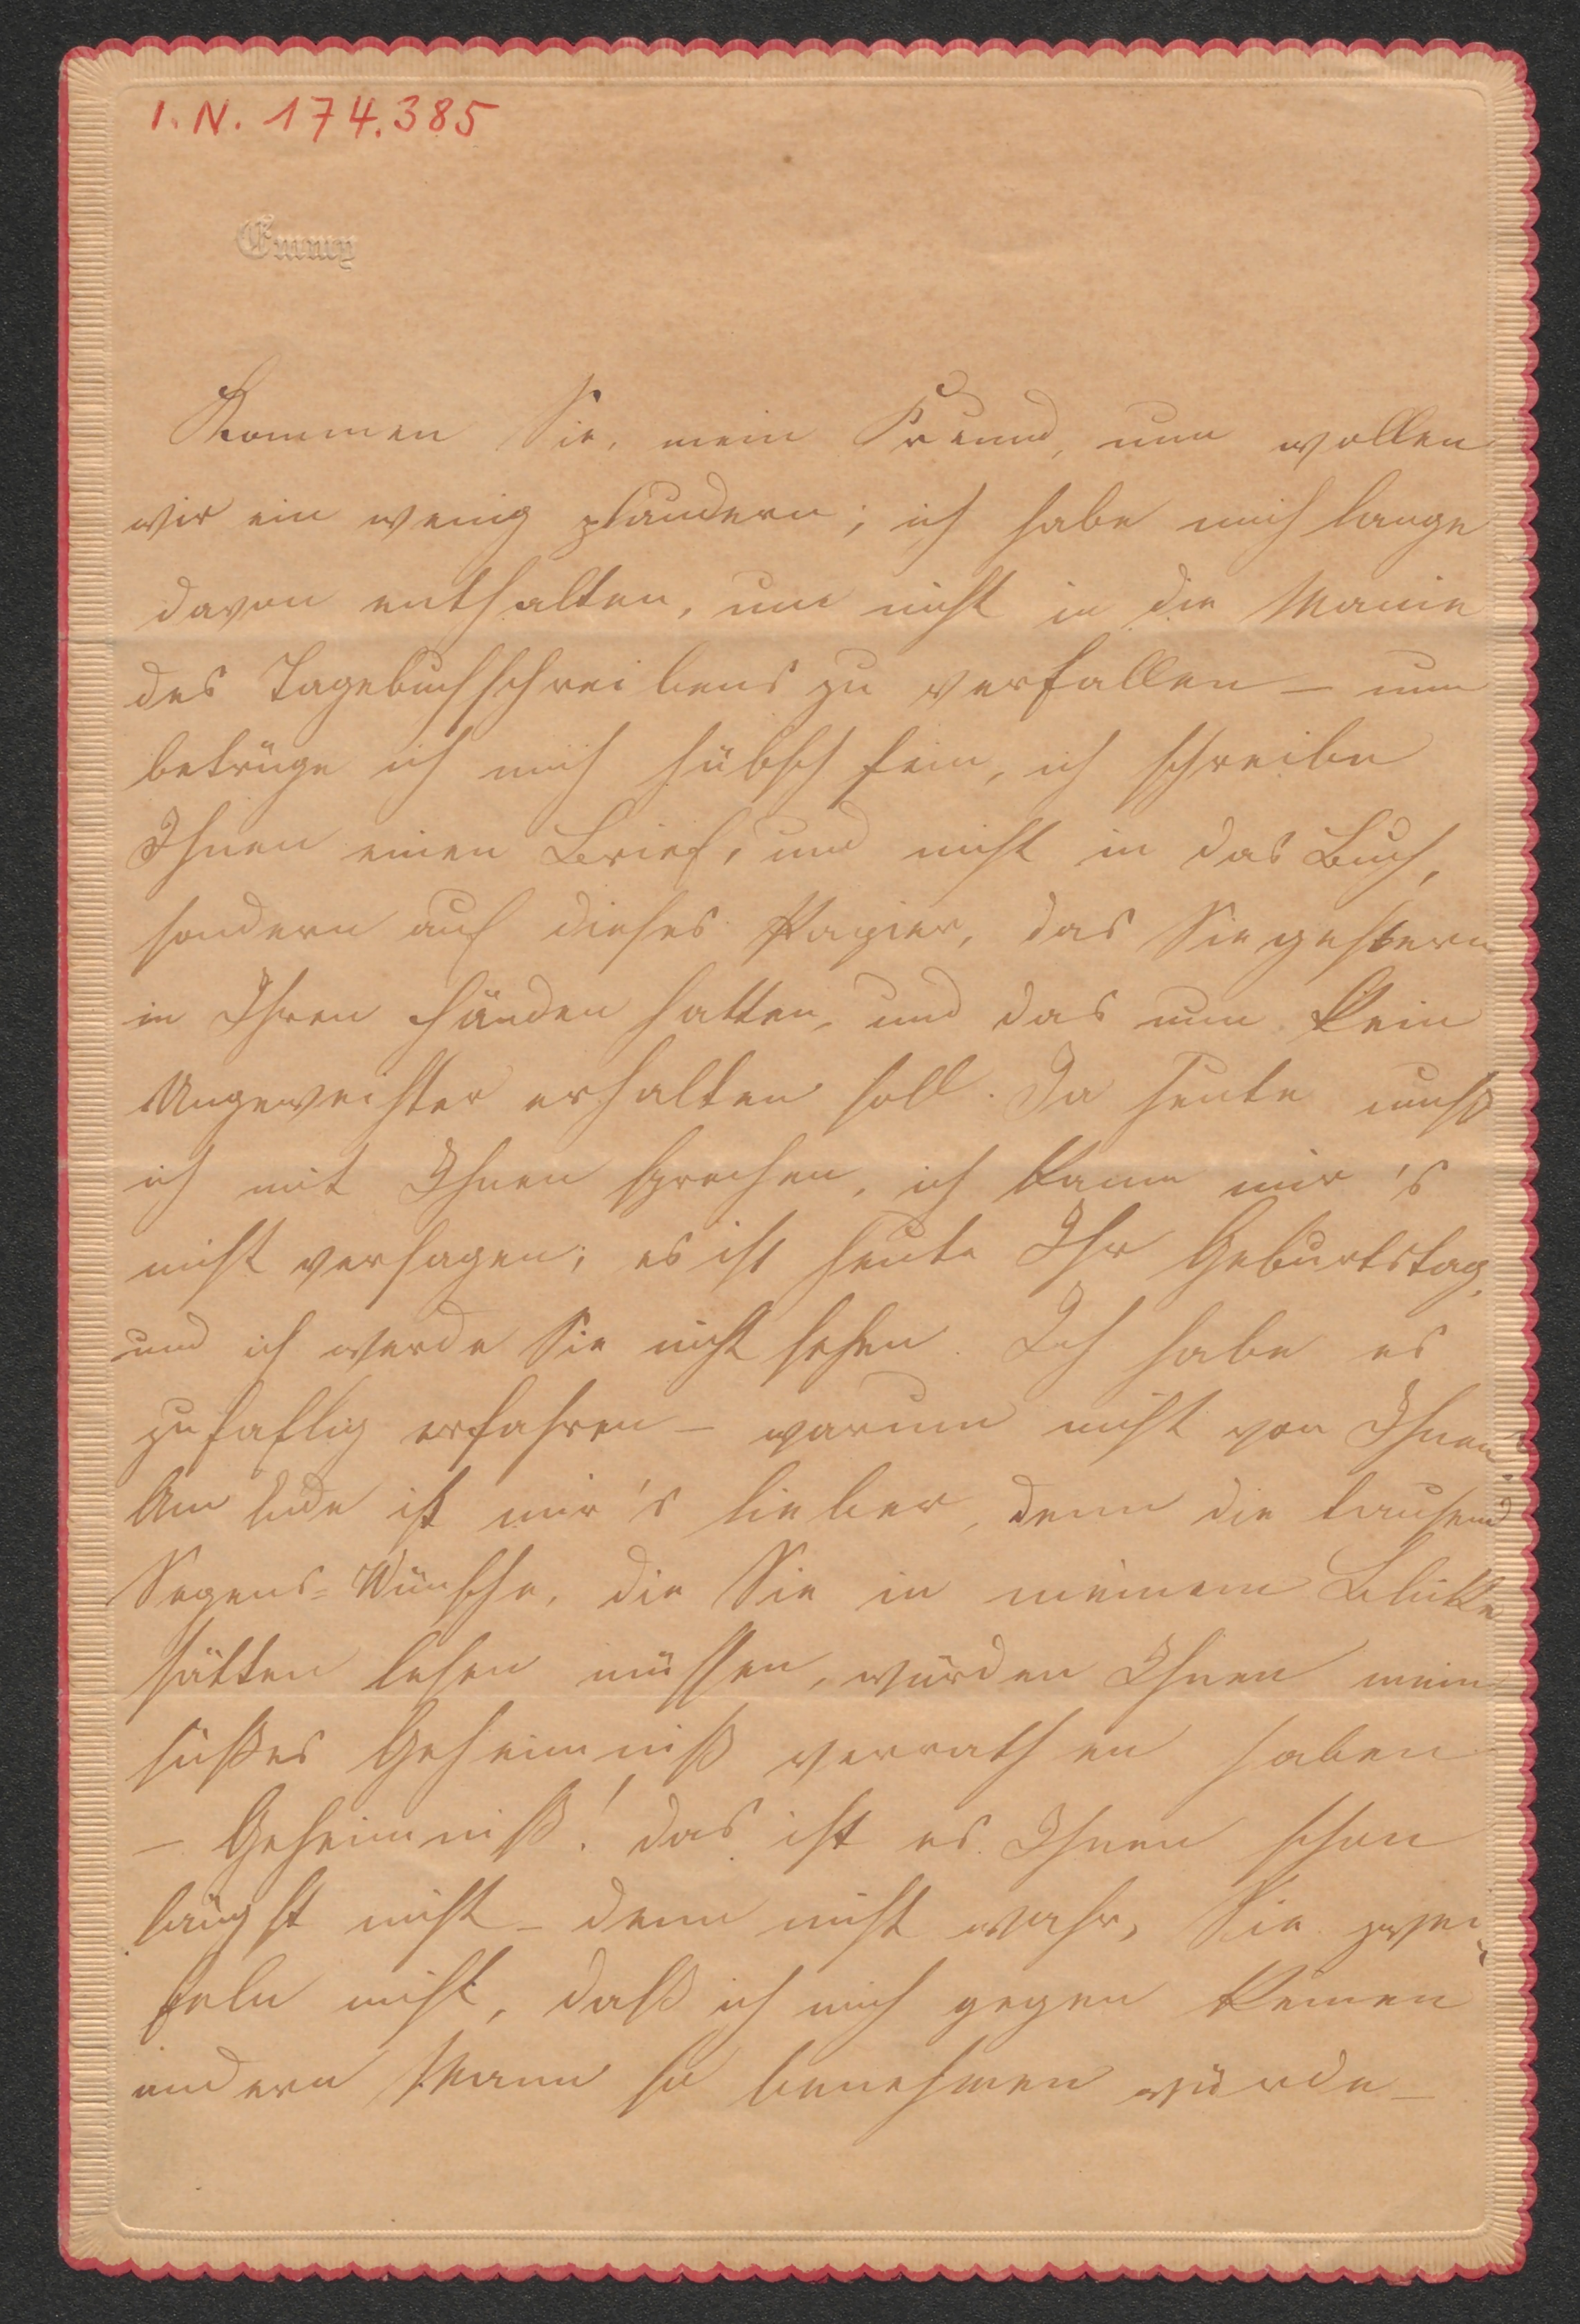 I. N. 174.385
Emmy
Kommen Sie, mein Freund, nun wollen
wir ein wenig plaudern; ich habe mich lange
davon enthalten, um nicht in die Manie
des Tagebuchschreibens zu verfallen – nun
betrüge ich mich hübsch fein, ich schreibe
Ihnen einen Brief, und nicht in das Buch,
sondern auf dieses Papier, das Sie gestern
in Ihren Händen hatten, und das nun kein
Ungeweihter erhalten soll. Ja heute muß
ich mit Ihnen sprechen, ich kann mir's
nicht versagen; es ist heute Ihr Geburtstag,
und ich werde Sie nicht sehen. Ich habe es
zufällig erfahren – warum nicht von Ihnen?
Am Ende ist mir's lieber, denn die tausend
Segens-Wünsche, die Sie in meinem Blicke
hätten lesen müssen, würden Ihnen mein
süßes Geheimniß verrathen haben
– Geheimniß! das ist es Ihnen schon
längst nicht – denn nicht wahr, Sie zwei-
feln nicht, daß ich mich gegen keinen
andern Mann so benehmen würde –